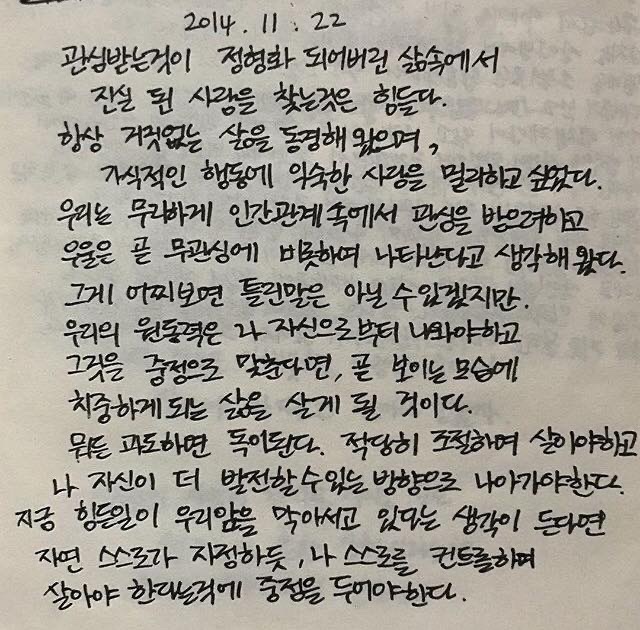 2014. 11. 22
관심받는것이 정형화 되어버린 삶속에서
진실 된 사람을 찾는것은 힘들다.
항상 거짓없는 삶을 동경해 왔으며,
가식적인 행동에 익숙한 사람을 멀리하고 싶었다.
우리는 무리하게 인간관계 속에서 관심을 받으려하고
우울은 곧 무관심에 비롯하며 나타난다고 생각해 왔다.
그게 어찌보면 틀린말은 아닐 수 있겠지만.
우리의 원동력은 나 자신으로부터 나와야하고
그것을 중점으로 맞춘다면, 곧 보이는 모습에
치중하게 되는 삶을 살게 될 것이다.
뭐든 과도하면 독이된다. 적당히 조절하며 살아야하고
나 자신이 더 발전할 수 있는 방향으로 나아가야한다.
지금 힘든일이 우리앞을 막아서고 있다는 생각이 든다면
자연 스스로가 지정하듯, 나 스스로를 컨트롤하며
살아야 한다는것에 중점을 두어야한다.